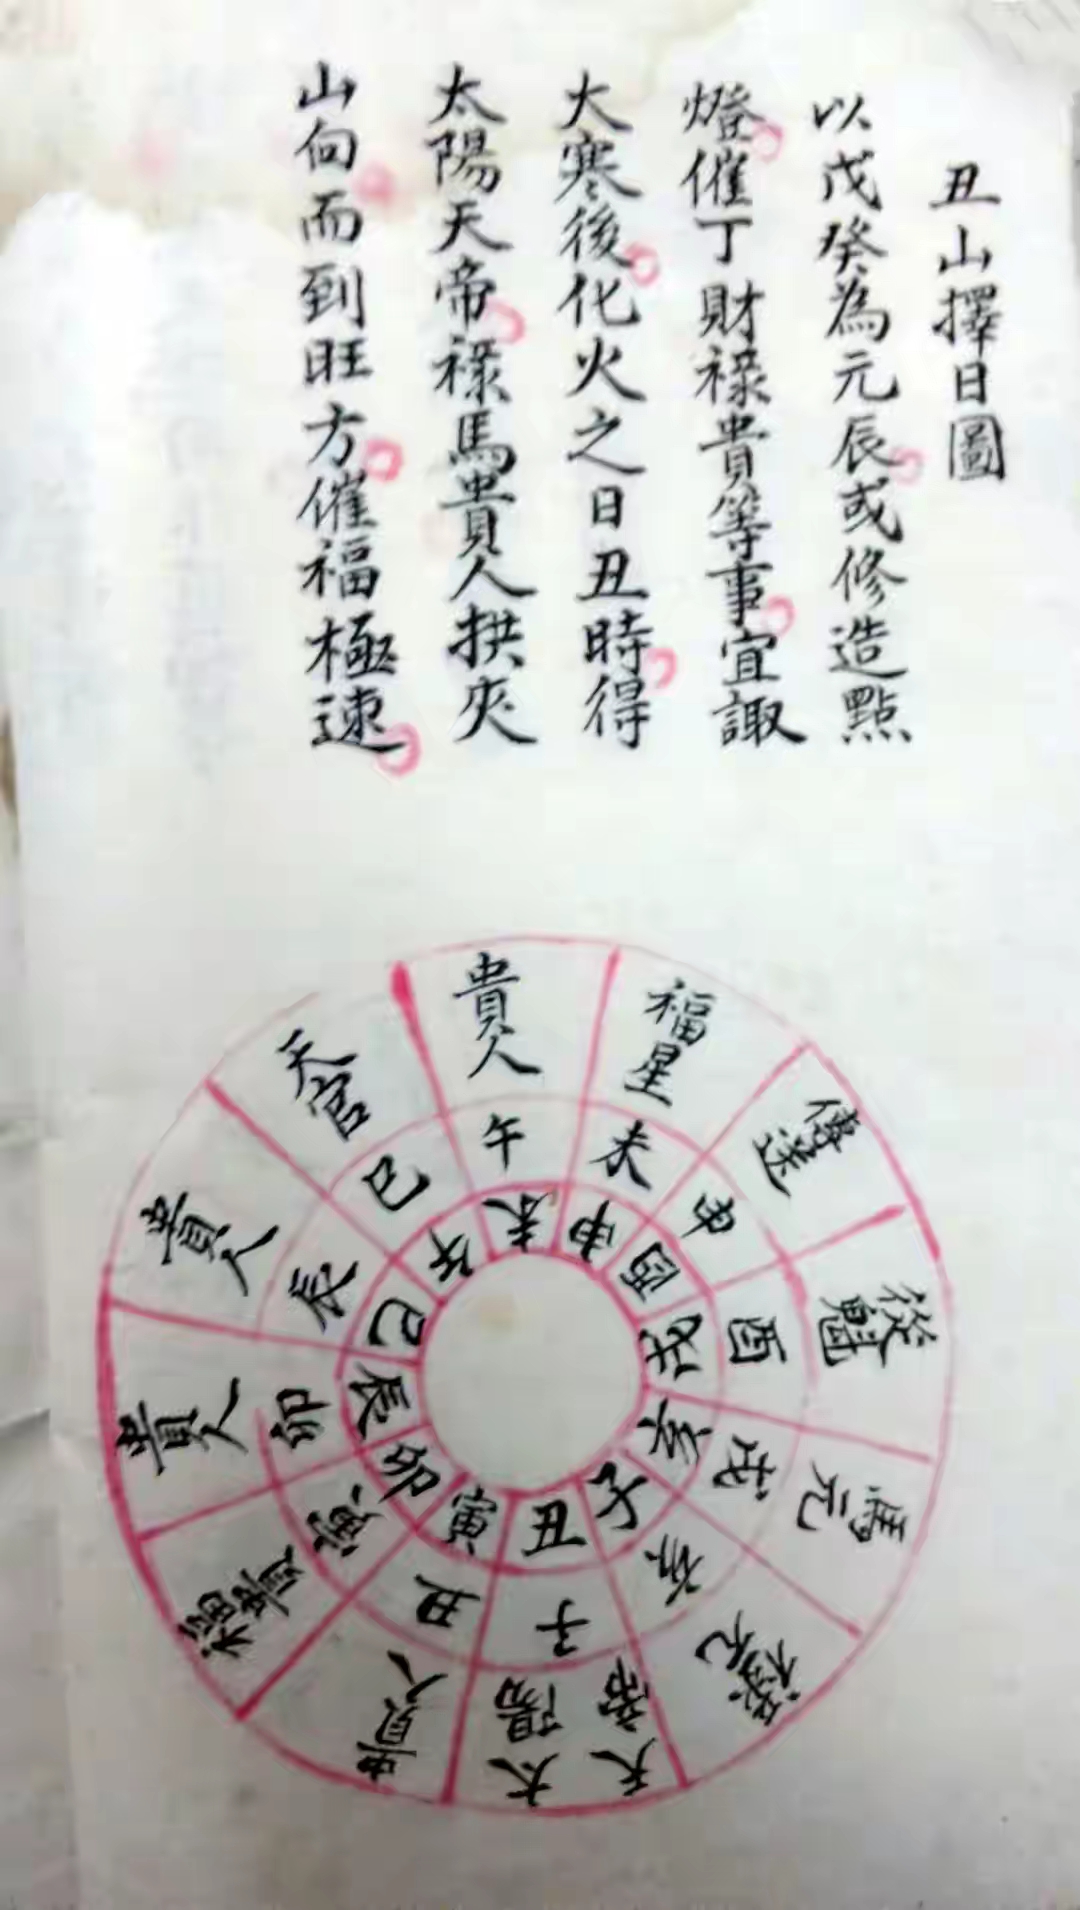 丑山擇日圖
以戊癸為元辰或修造點
燈催丁財祿貴等事宜諏
大寒後化火之日丑時得
太陽天帝祿馬貴人拱夾
山向而到旺方催福極速
貴人
福星
傳送
從魁
馬元
祿元
天帝
太陽
貴人
福貴
貴人
貴人
天官
午
未
申
酉
戌
亥
子
丑
寅
卯
辰
巳
未
申
酉
戌
亥
子
丑
寅
卯
辰
巳
午